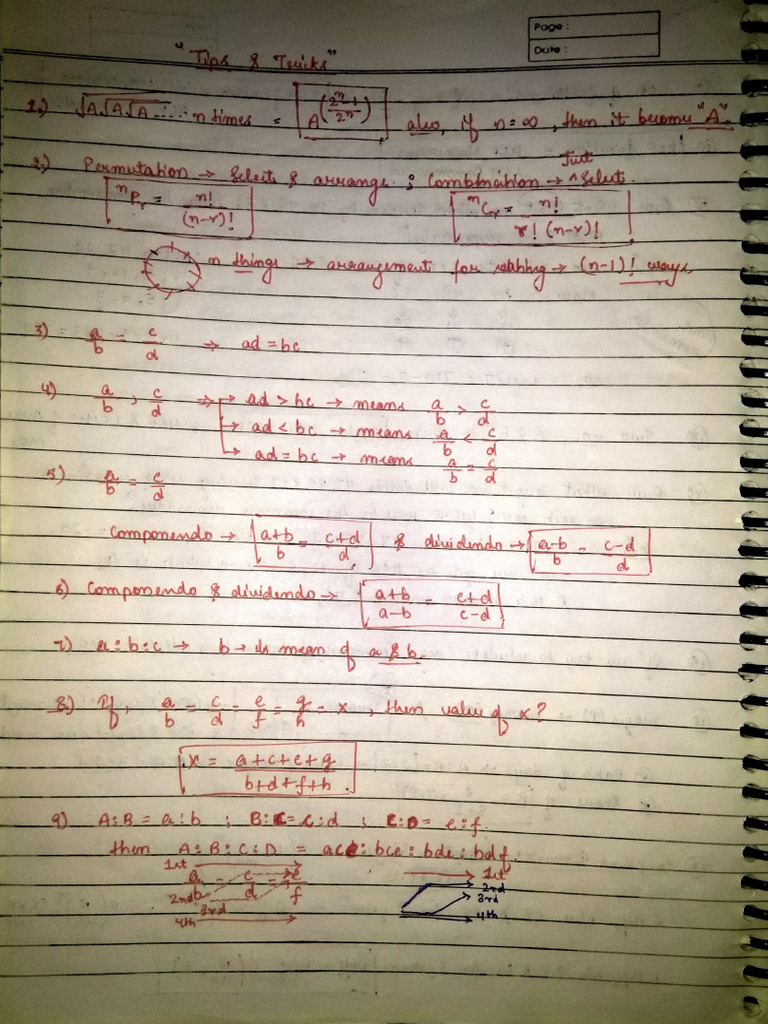 Page :
Date :
"Tips & Tricks"
1.) √A√A√A..... n times = A^((2^n-1)/2^n) also, if n=∞, then it become "A".
2.) Permutation → Select & arrange ; Combination → Just Select.
nPr = n!/(n-r)! nCr = n!/r!(n-r)!
n things → arrangement for → (n-1)! ways.
3) a/b = c/d → ad = bc
4) a/b , c/d ⇒ → ad > bc → means a/b > c/d
→ ad < bc → means a/b < c/d
→ ad = bc → means a/b = c/d
5) a/b = c/d
Componendo → a+b/b = c+d/d & dividendo → a-b/b = c-d/d
6) Componendo & dividendo → a+b/a-b = c+d/c-d
7) a:b:c → b → is mean of a & b.
8) If, a/b = c/d = e/f = g/h = x, then value of x?
x = a+c+e+g/b+d+f+h.
9) A:B = a:b ; B:C = c:d ; C:D = e:f.
then A:B:C:D = ace:bce:bde:bdf.
1st → → 1st
a/b = c/d = e/f
2nd 2nd
3rd 3rd
4th 4th